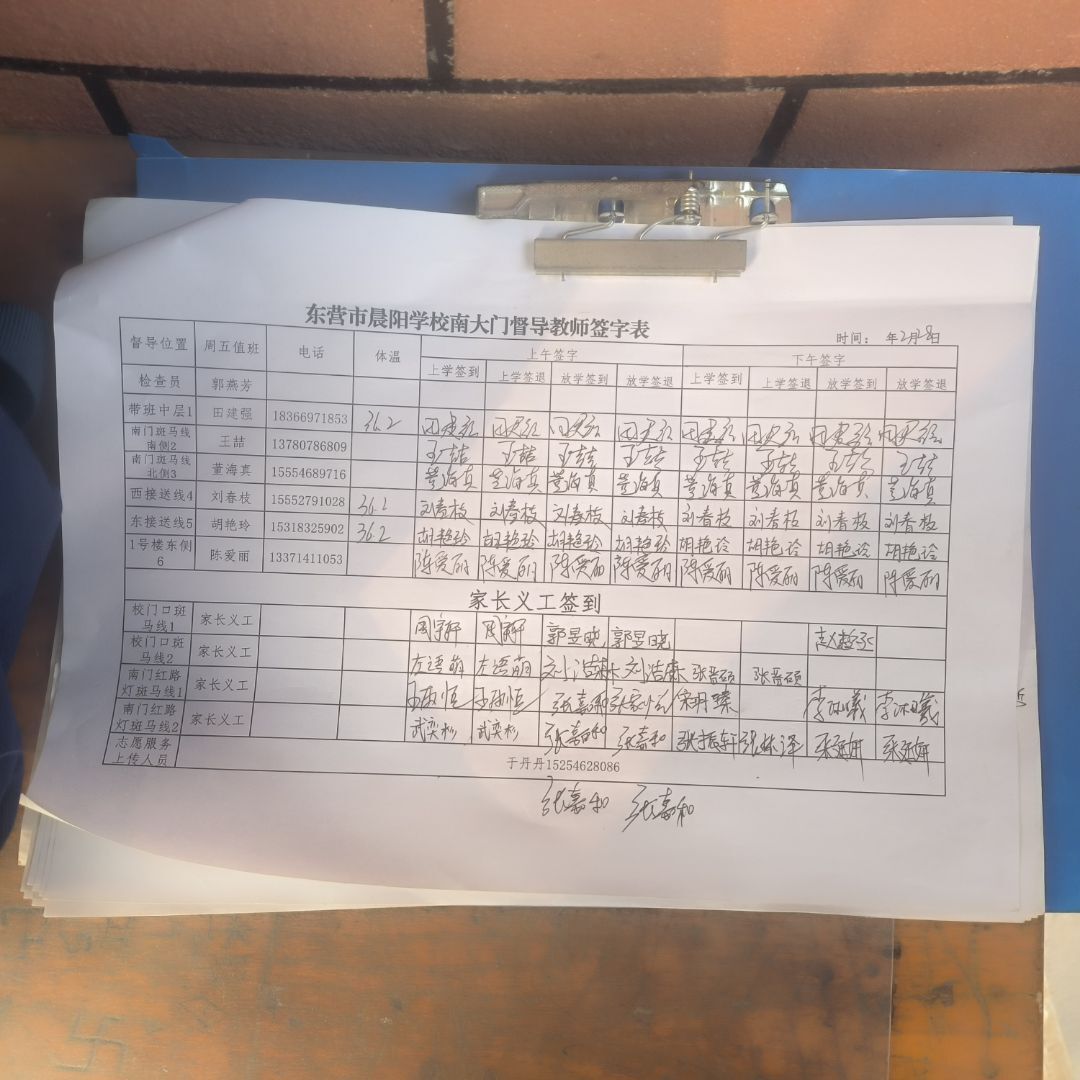 东营市晨阳学校南大门督导教师签字表
时间： 年2月28日
督导位置 周五值班 电话 体温 上午签字 下午签字
上学签到 上学签退 放学签到 放学签退 上学签到 上学签退 放学签到 放学签退
检查员 郭燕芳
带班中层1 田建强 18366971853 36.2 田建强 田建强 田建强 田建强 田建强 田建强 田建强 田建强
南门斑马线南侧2 王喆 13780786809 王喆 王喆 王喆 王喆 王喆 王喆 王喆 王喆
南门斑马线北侧3 董海真 15554689716 董海真 董海真 董海真 董海真 董海真 董海真 董海真 董海真
西接送线4 刘春枝 15552791028 36.2 刘春枝 刘春枝 刘春枝 刘春枝 刘春枝 刘春枝 刘春枝 刘春枝
东接送线5 胡艳玲 15318325902 36.2 胡艳玲 胡艳玲 胡艳玲 胡艳玲 胡艳玲 胡艳玲 胡艳玲 胡艳玲
1号楼东侧6 陈爱丽 13371411053 陈爱丽 陈爱丽 陈爱丽 陈爱丽 陈爱丽 陈爱丽 陈爱丽 陈爱丽
家长义工签到
校门口斑马线1 家长义工 周宇轩 周宇轩 郭昱晓 郭昱晓
校门口斑马线2 家长义工 左语萌 左语萌 刘浩霖 刘浩霖 张晋硕 张晋硕
南门红路灯斑马线1 家长义工 张嘉和
南门红路灯斑马线2 家长义工 武奕杉 武奕杉 张嘉和 张嘉和 张振轩
志愿服务上传人员 于丹丹15254628086
张嘉和 张嘉和